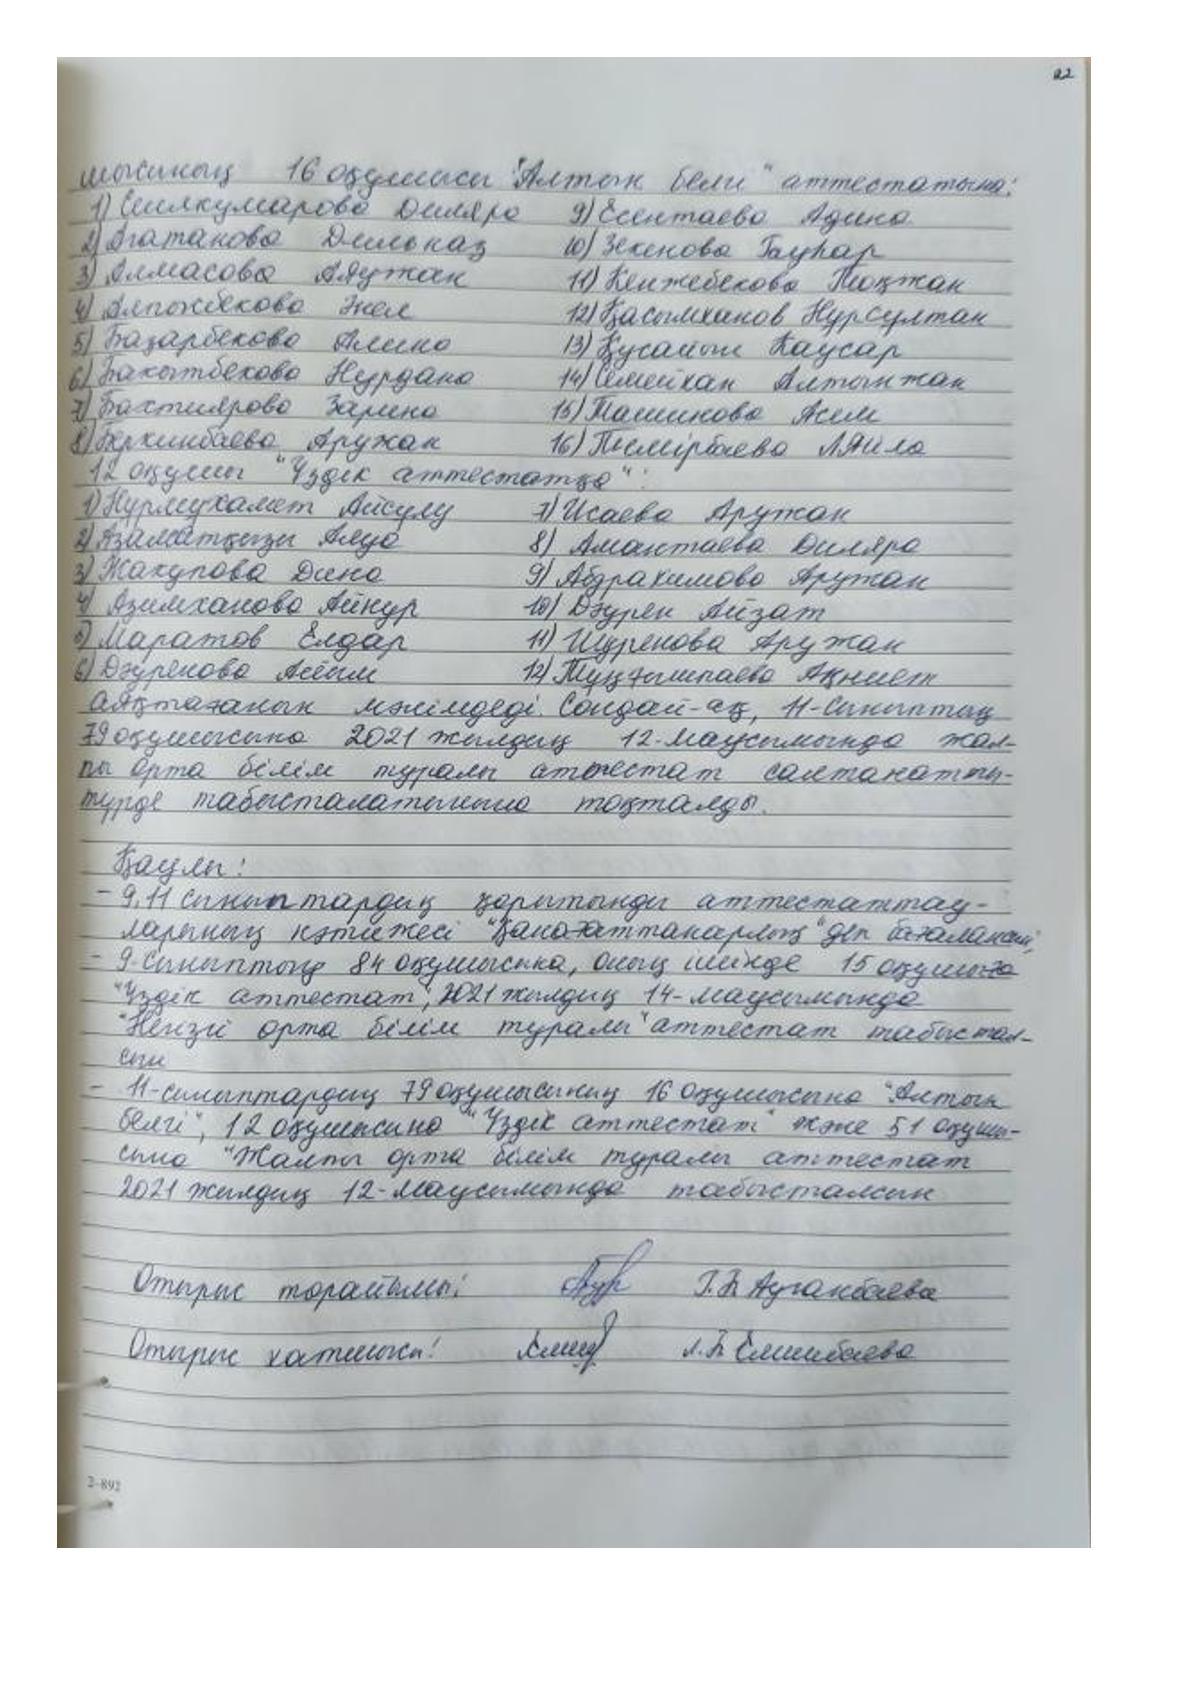 22
мысының 16 оқушысы "Алтын белгі" аттестатына:
1) Сешлкумарова Диляра 9) Есентаева Адина
2) Агатанова Дильназ 10) Зекенова Гауһар
3) Алмасова Аяужан 11) Кенжебекова Тоқжан
4) Алпожбекова Әнел 12) Қасымханов Нурсултан
5) Базарбекова Алина 13) Құсайын Каусар
6) Бакытбекова Нурдана 14) Семейхан Алтынжан
7) Бахтиярова Зарина 15) Ташикова Асем
8) Беркинбаева Аружан 16) Темірбаева Ляйла
12 оқушы "Үздік аттестатқа":
1) Нурмухамет Айсулу 7) Исаева Аружан
2) Азаматқызы Алуа 8) Амантаева Диляра
3) Жакупова Дина 9) Абдрахимова Аружан
4) Азимханова Айнур 10) Дәурен Айзат
5) Маратов Елдар 11) Шуренова Аружан
6) Дәуренова Асем 12) Тұңғышпаева Ақниет
аяқтағанын мәлімдеді. Сондай-ақ, 11-сыныптың
79 оқушысына 2021 жылдың 12-маусымында жал-
пы орта білім туралы аттестат салтанатты-
түрде табысталатынына тоқталды.
Қаулы:
- 9,11 сыныптардың қорытынды аттестаттау-
ларының нәтижесі "Қанағаттанарлық" деп бағалансын;
- 9-сыныптың 84 оқушысына, оның ішінде 15 оқушыға
"Үздік аттестат", 2021 жылдың 14-маусымында
"Негізгі орта білім туралы" аттестат табыстал-
сын
- 11-сыныптардың 79 оқушысының 16 оқушысына "Алтын
белгі", 12 оқушысына "Үздік аттестат" және 51 оқушы-
сына "Жалпы орта білім туралы аттестат
2021 жылдың 12-маусымында табысталсын
Отырыс төрайымы: Г.Б Ауганбаева
Отырыс хатшысы: Л.Б Елшибаева
2-892